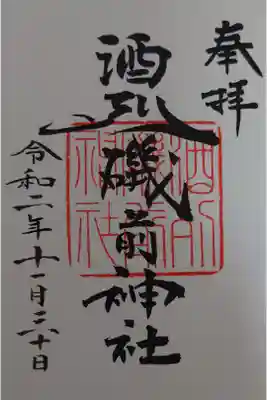 奉拝
酒列磯前神社
令和二年十一月三十日
酒列
磯前
神社